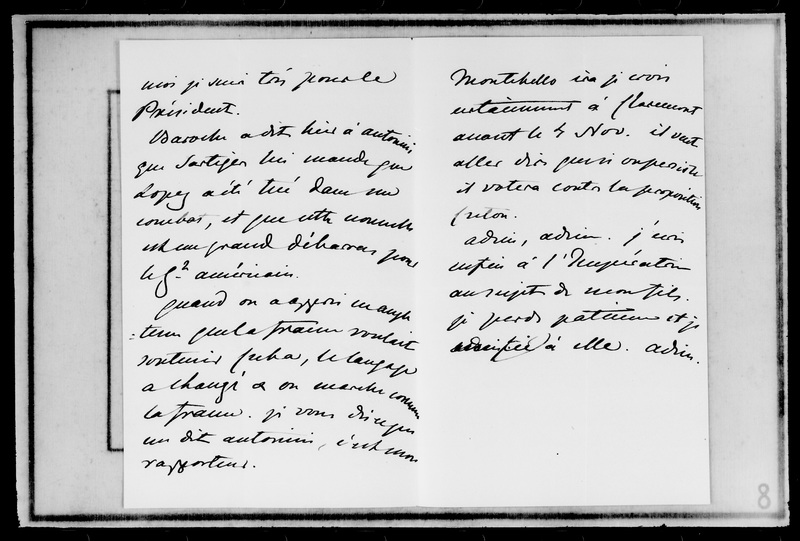 moi je suis très pour le
Président.
Baroche a dit hier à antonini
que Sartiges lui mande que
Lopez a été tué dans un
combat, et que cette nouvelle
est un grand débarras pour
le g.t américain.
quand on a appris en angle
=terre que la france voulait
soutenir Cuba, le langage
a changé & on marche comme
la france. je vous dis ce que
me dit antonini, c'est mon
rapporteur.
Montebello ira je crois
certainement à Claremont
avant le 4 Nov. il veut
aller dire que si on persiste
il votera contre la proposition
Creton.
adieu, adieu. j'écris
enfin à l'Impératrice
au sujet de mon fils.
je perds patience et je
à elle. adieu.
8